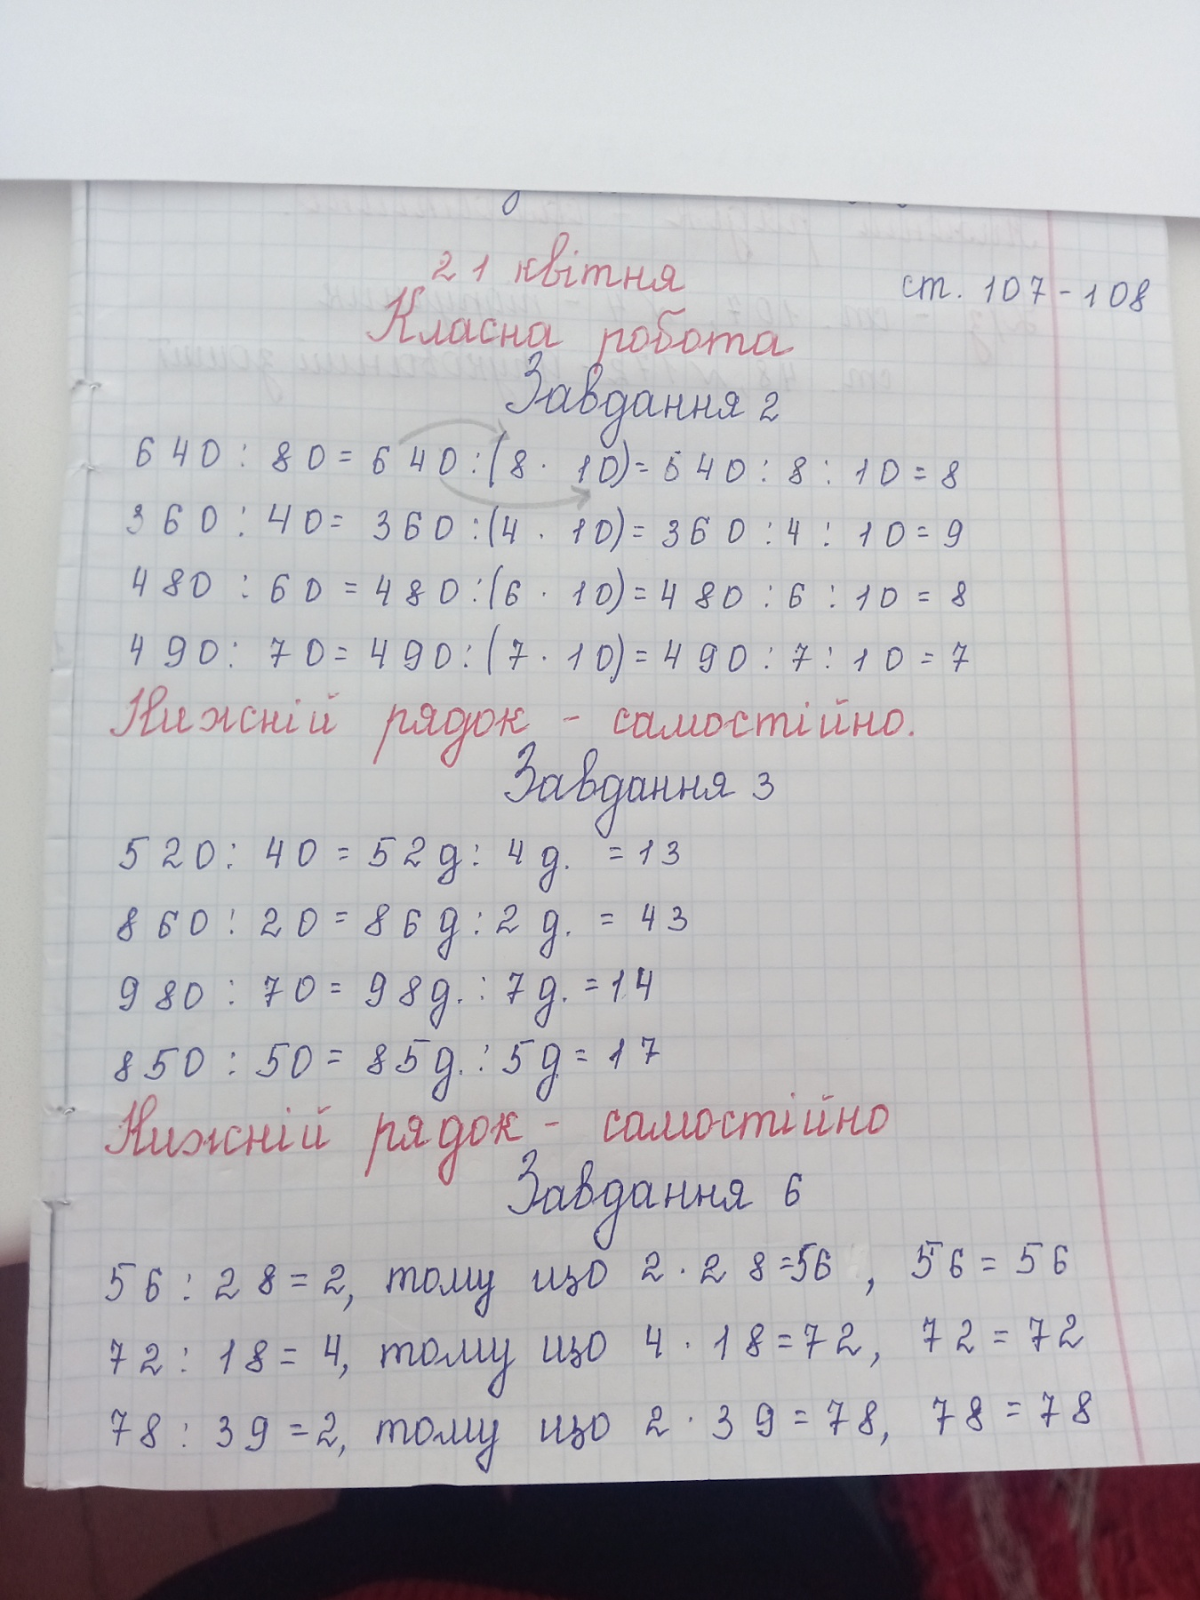 21 квітня
ст. 107-108
Класна робота
Завдання 2
640 : 80 = 640 : (8 · 10) = 640 : 8 : 10 = 8
360 : 40 = 360 : (4 · 10) = 360 : 4 : 10 = 9
480 : 60 = 480 : (6 · 10) = 480 : 6 : 10 = 8
490 : 70 = 490 : (7 · 10) = 490 : 7 : 10 = 7
Нижній рядок - самостійно.
Завдання 3
520 : 40 = 52д : 4д. = 13
860 : 20 = 86д : 2д. = 43
980 : 70 = 98д. : 7д. = 14
850 : 50 = 85д. : 5д = 17
Нижній рядок - самостійно
Завдання 6
56 : 28 = 2, тому що 2 · 28 = 56, 56 = 56
72 : 18 = 4, тому що 4 · 18 = 72, 72 = 72
78 : 39 = 2, тому що 2 · 39 = 78, 78 = 78